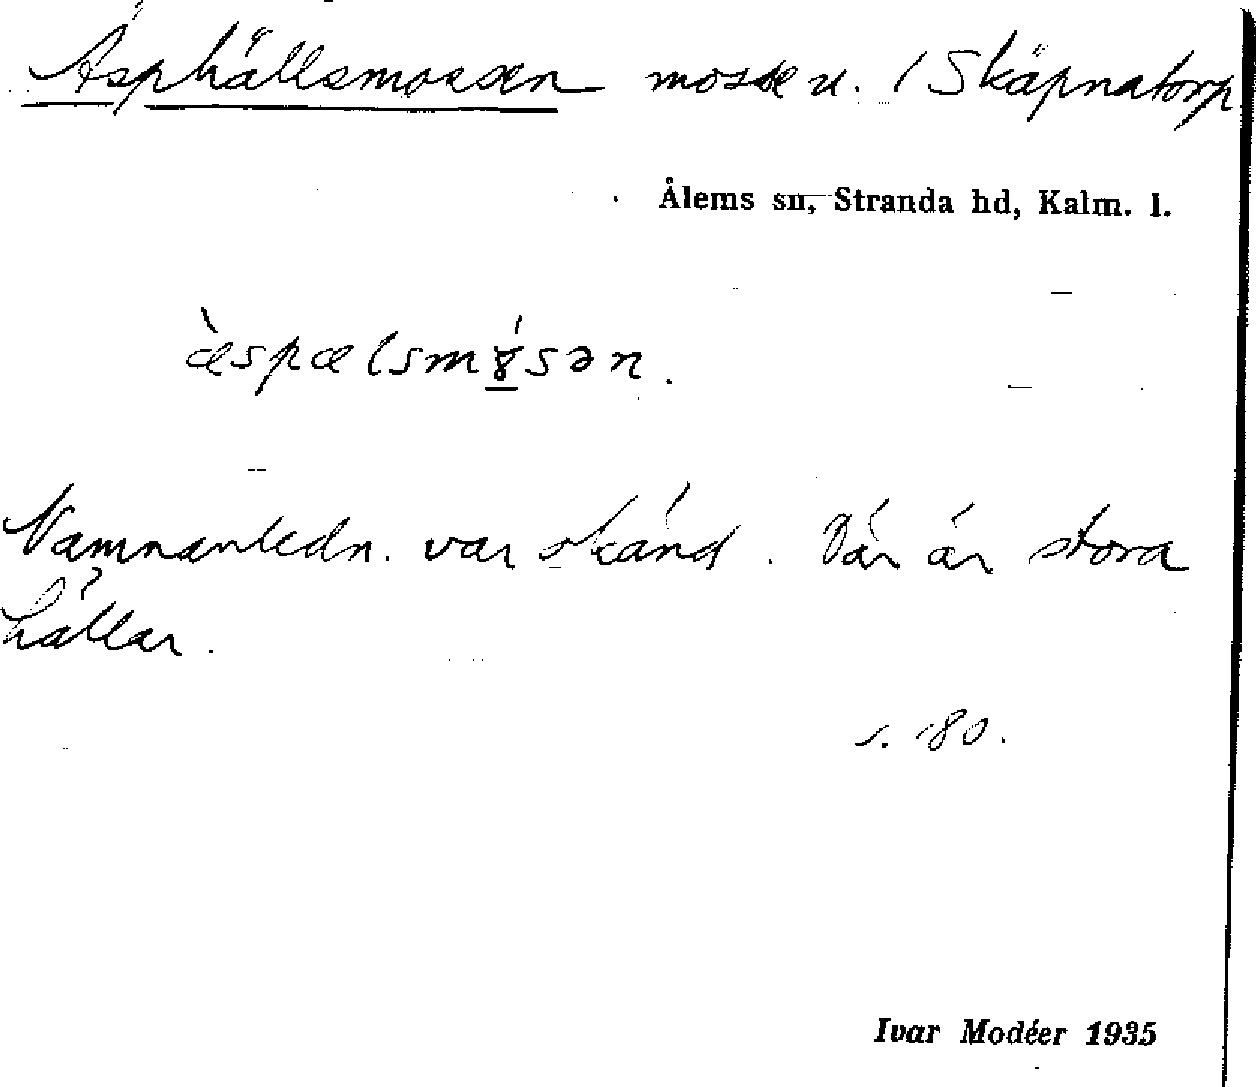 Äsphällsmossen mosse u. / Skäpnatorp
Ålems sn, Stranda hd, Kalm. l.
æ̀spælsmɣ́sən.
Namnanledn. var okänd. Där är stora
hällar.
s. 180.
Ivar Modéer 1935